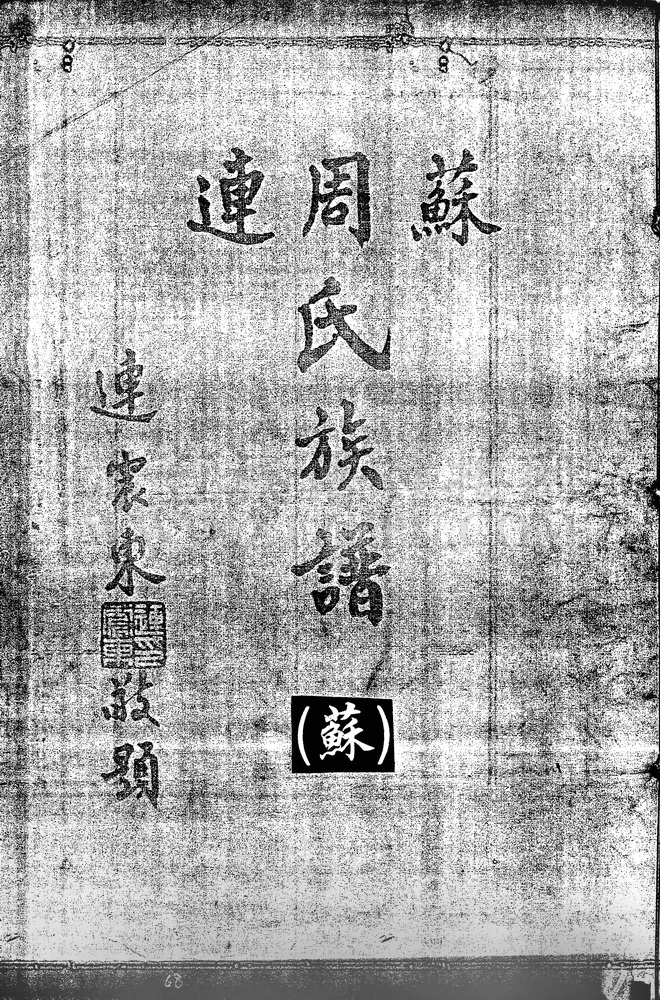 蘇周連
氏族譜
(蘇)
連震東敬題
68